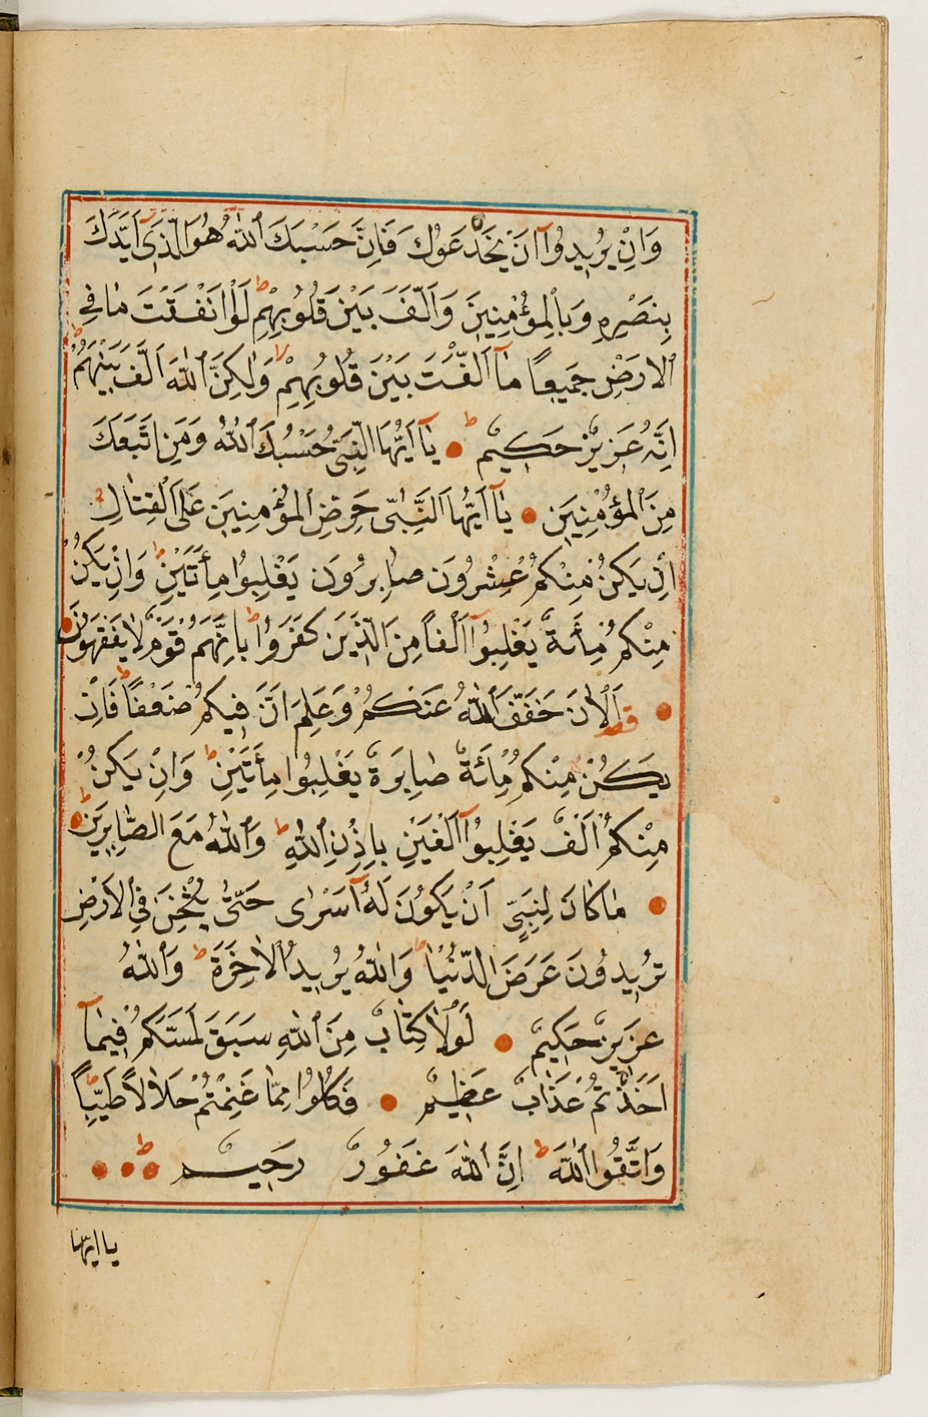 وَاِنْ يُرِيدُوٓا اَنْ يَخْدَعُوكَ فَاِنَّ حَسْبَكَ اللّٰهُ هُوَ الَّذٓى اَيَّدَكَ
بِنَصْرِهٖ وَبِالْمُؤْمِنِينَ وَاَلَّفَ بَيْنَ قُلُوبِهِمْ ط لَوْ اَنْفَقْتَ مَا فِي
الْاَرْضِ جَمِيعًا مَٓا اَلَّفْتَ بَيْنَ قُلُوبِهِمْ لا وَلٰكِنَّ اللّٰهَ اَلَّفَ بَيْنَهُمْ ط
اِنَّهُ عَزِيزٌ حَكِيمٌ ط يَٓا اَيُّهَا النَّبِىُّ حَسْبُكَ اللّٰهُ وَمَنِ اتَّبَعَكَ
مِنَ الْمُؤْمِنِينَ يَٓا اَيُّهَا النَّبِىُّ حَرِّضِ الْمُؤْمِنِينَ عَلَى الْقِتَالِ ط
اِنْ يَكُنْ مِنْكُمْ عِشْرُونَ صَابِرُونَ يَغْلِبُوا مِأَتَيْنِ ط وَاِنْ يَكُنْ
مِنْكُمْ مِأَئَةٌ يَغْلِبُوٓا اَلْفًا مِنَ الَّذِينَ كَفَرُوا ط بِاَنَّهُمْ قَوْمٌ لَا يَفْقَهُونَ
اَلْاٰنَ خَفَّفَ اللّٰهُ عَنْكُمْ وَعَلِمَ اَنَّ فِيكُمْ ضَعْفًا ط فَاِنْ
يَكُنْ مِنْكُمْ مِائَةٌ صَابِرَةٌ يَغْلِبُوا مِأَتَيْنِ ط وَاِنْ يَكُنْ
مِنْكُمْ اَلْفٌ يَغْلِبُوٓا اَلْفَيْنِ بِاِذْنِ اللّٰهِ ط وَاللّٰهُ مَعَ الصَّابِرِينَ ط
مَا كَانَ لِنَبِيٍّ اَنْ يَكُونَ لَهُٓ اَسْرٰى حَتّٰى يُثْخِنَ فِي الْاَرْضِ
تُرِيدُونَ عَرَضَ الدُّنْيَا ط وَاللّٰهُ يُرِيدُ الْاٰخِرَةَ ط وَاللّٰهُ
عَزِيزٌ حَكِيمٌ لَوْلَا كِتَابٌ مِنَ اللّٰهِ سَبَقَ لَمَسَّكُمْ فِيمَٓا
اَخَذْتُمْ عَذَابٌ عَظِيمٌ فَكُلُوا مِمَّا غَنِمْتُمْ حَلَالًا طَيِّبًا ط
وَاتَّقُوا اللّٰهَ ط اِنَّ اللّٰهَ غَفُورٌ رَحِيمٌ ط
يا ايها